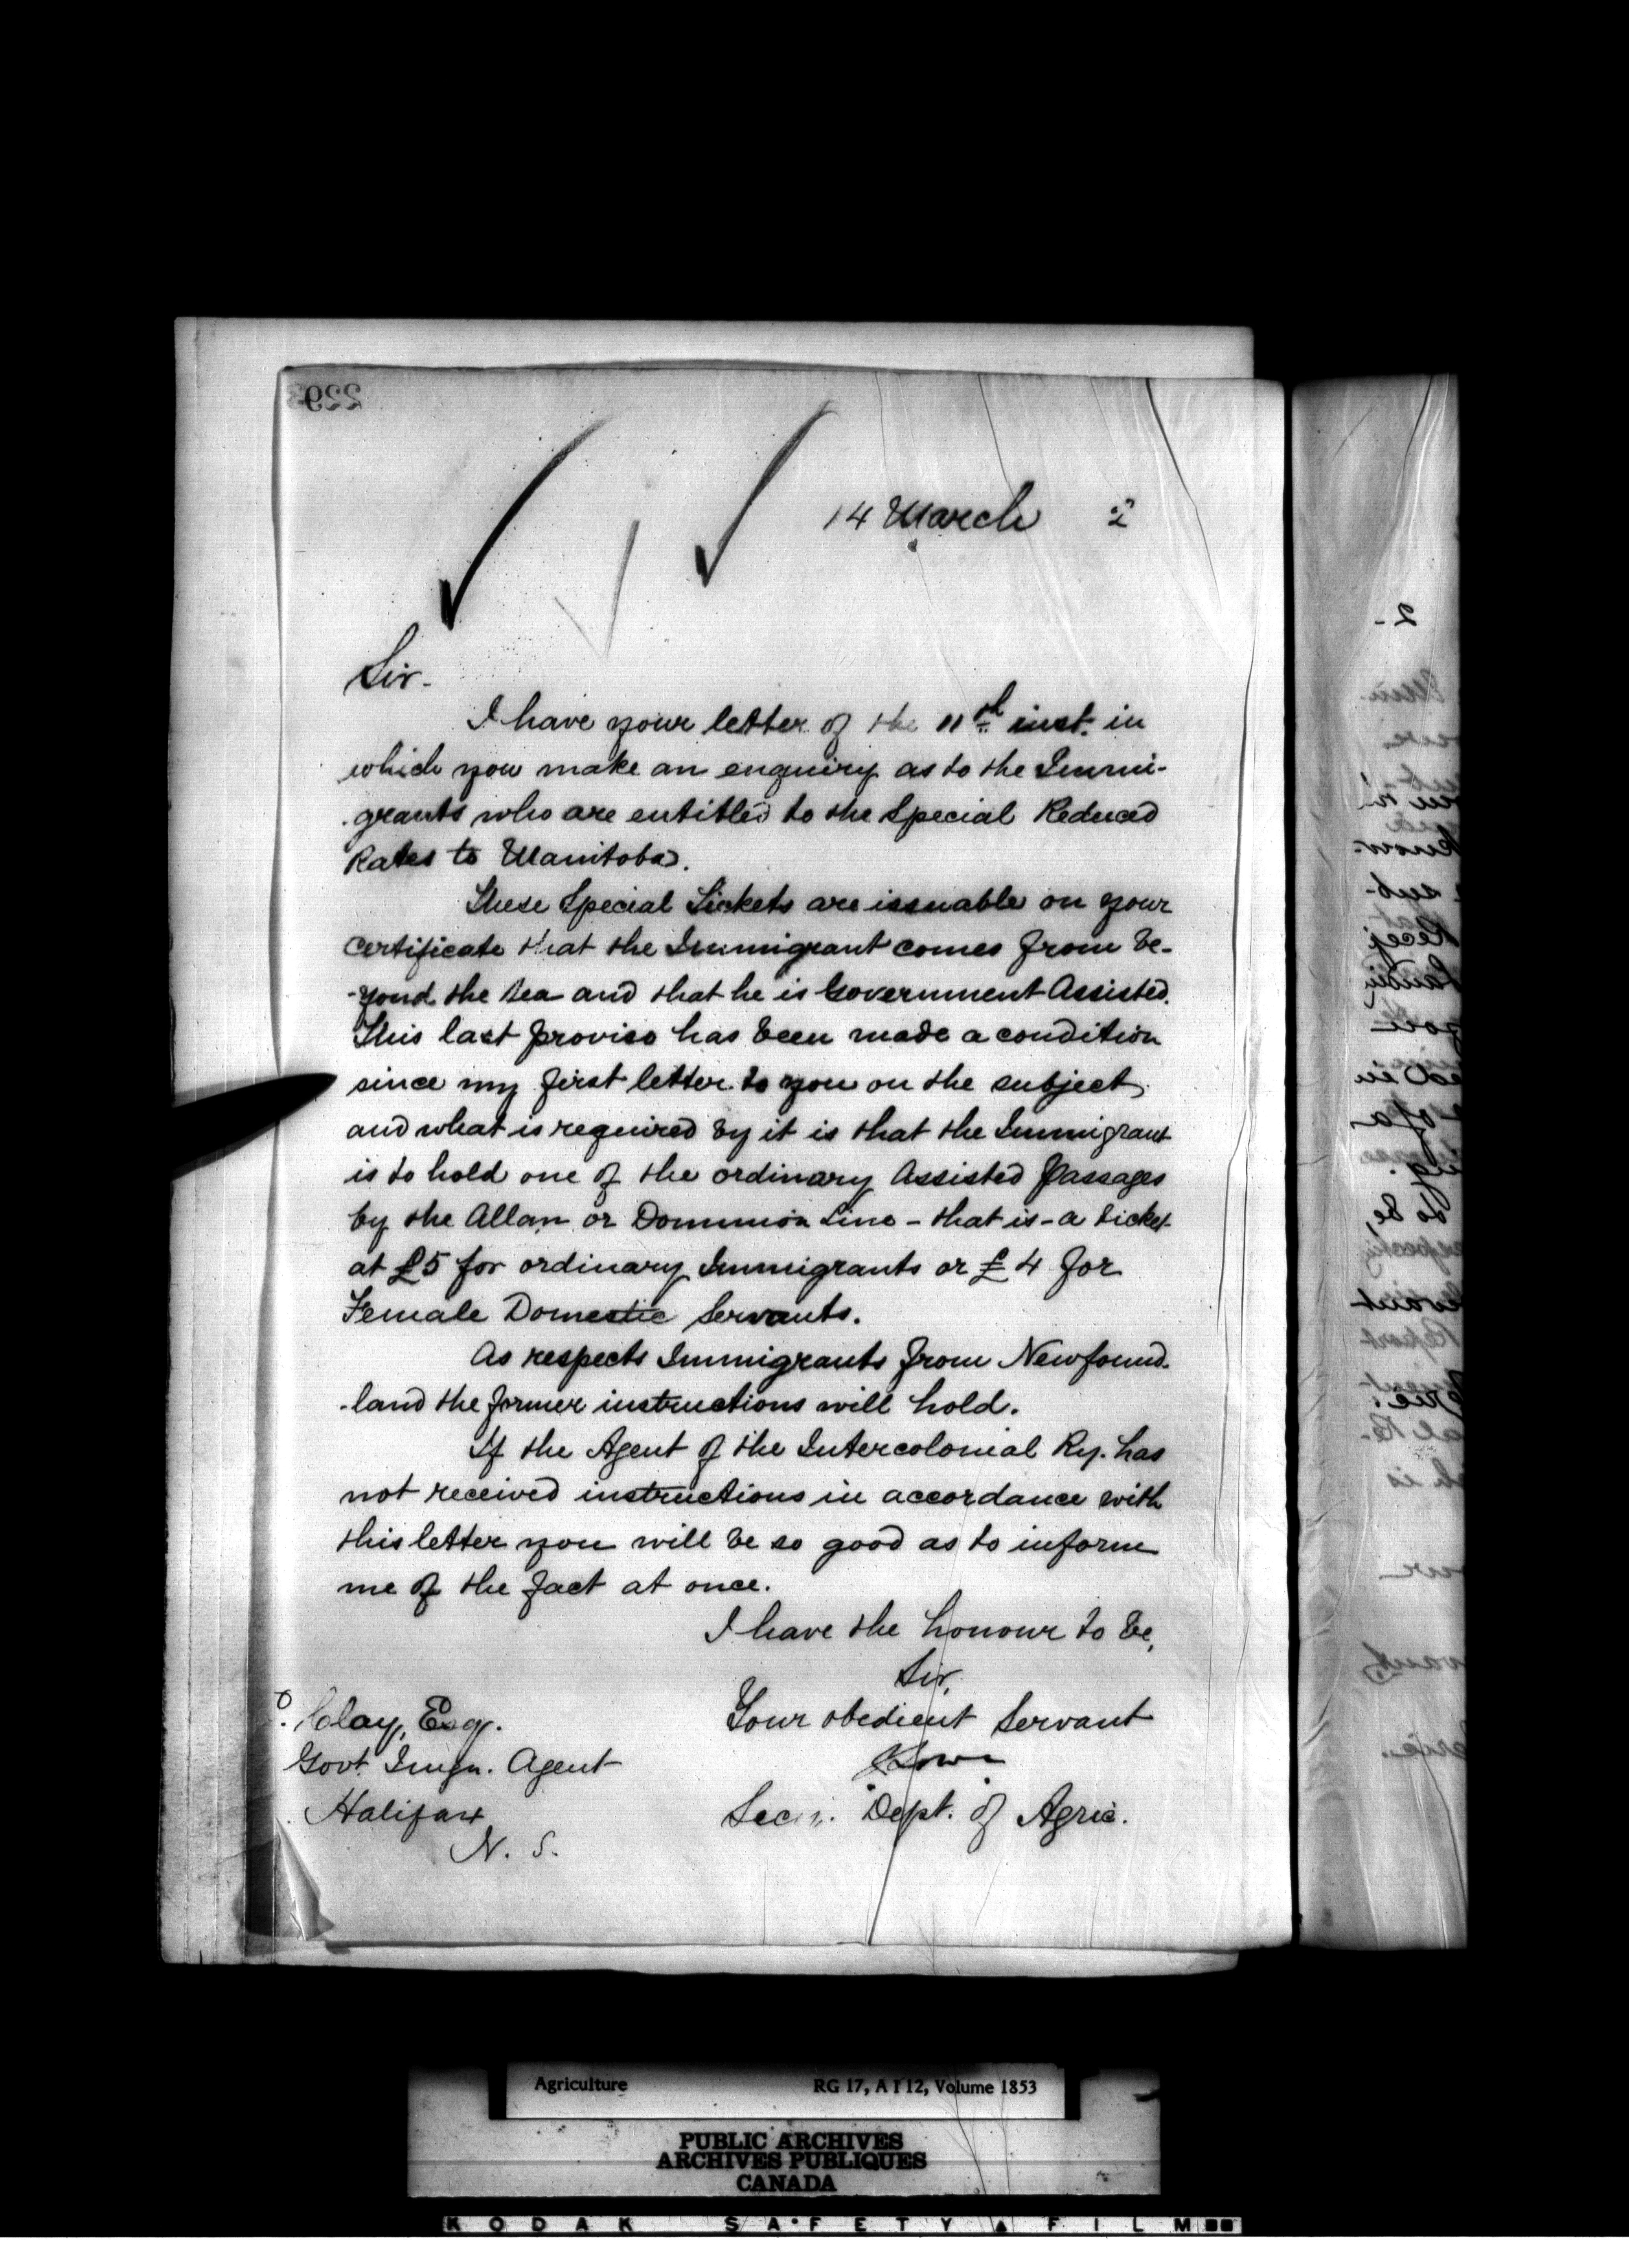 229
14 March 2
Sir.
I have your letter of the 11th inst. in
which you make an enquiry as to the Immi-
grants who are entitled to the Special Reduced
Rates to Manitoba.
These Special Tickets are issuable on your
certificate that the Immigrant comes from be-
-yond the sea and that he is Government Assisted.
This last proviso has been made a condition
since my first letter to you on the subject,
and what is required by it is that the Immigrant
is to hold one of the ordinary Assisted Passages
by the Allan or Dominion Line - that is - a ticket
at £5 for ordinary Immigrants or £4 for
Female Domestic Servants.
As respects Immigrants from Newfound-
-land the former instructions will hold.
If the Agent of the Intercolonial Ry. has
not received instructions in accordance with
this letter you will be so good as to inform
me of the fact at once.
I have the honour to be,
Sir,
Your obedient Servant
Lowe
Secy. Dept. of Agric.
Clay, Esq.
Govt. Immgn. Agent
Halifax
N. S.
Agriculture RG 17, A I 12, Volume 1853
PUBLIC ARCHIVES
ARCHIVES PUBLIQUES
CANADA
KODAK SAFETY FILM